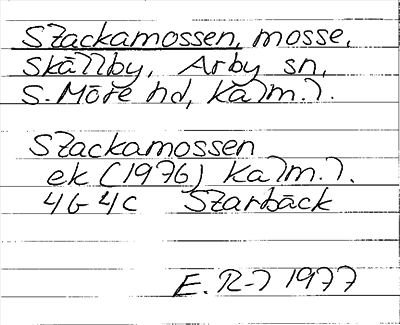 Slackamossen, mosse,
Skällby, Arby sn,
S. Möre hd, Kalm. l.
Slackamossen
ek (1976) Kalm. l.
4G 4c
E. R-l 1977